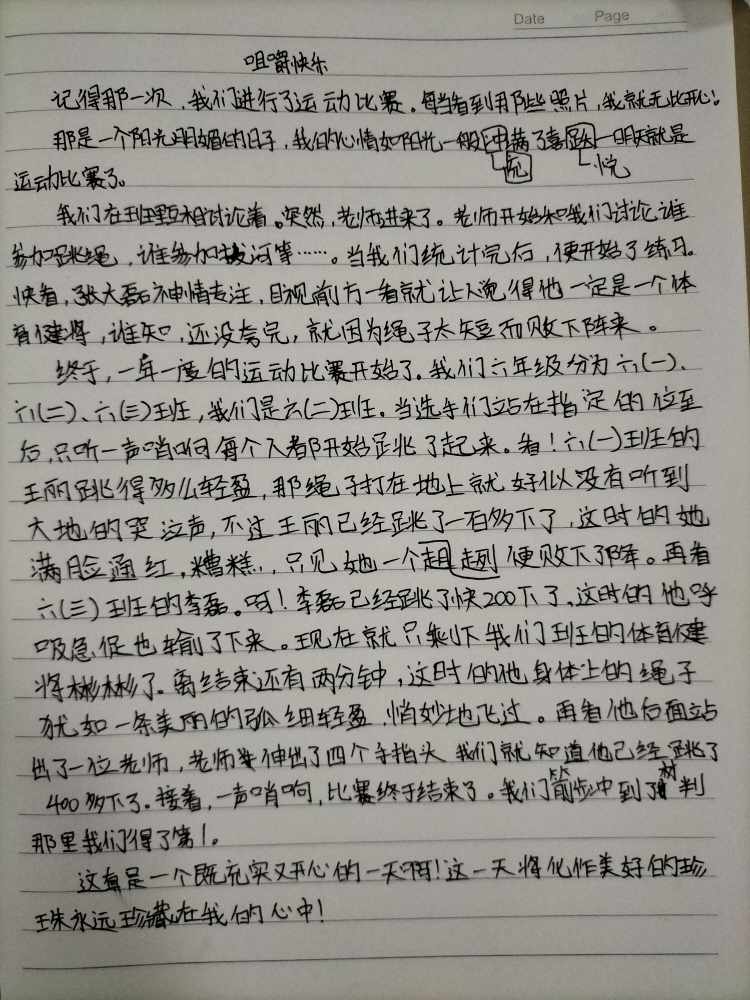 Date Page
咀嚼快乐
记得那一次，我们进行了运动比赛。每当看到那些照片，我就无比开心。
那是一个阳光明媚的日子，我的心情如阳光一般充满了喜悦一明天就是
运动比赛了。
我们在班里相讨论着。突然，老师进来了。老师开始和我们讨论谁
参加跳绳，谁参加拔河等……。当我们统计完后，便开始了练习。
快看，张大磊神情专注，目视前方一看就让人觉得他一定是一个体
育健将，谁知，还没夸完，就因为绳子太短而败下阵来。
终于，一年一度的运动比赛开始了。我们六年级分为六(一)、
六(二)、六(三)班，我们是六(二)班。当选手们站在指定的位至
后，只听一声哨响每个人都开始跳了起来。看！六(一)班的
王丽跳得多么轻盈，那绳子打在地上就好似没有听到
大地的哭泣声，不过王丽已经跳了一百多下了，这时的她
满脸通红，糟糕，只见她一个趔趄便败下了阵。再看
六(三)班的李磊。呀！李磊已经跳了快200下了，这时的他呼
吸急促也输了下来。现在就只剩下我们班的体育健
将彬彬了。离结束还有两分钟，这时的他身体上的绳子
犹如一条美丽的弧细轻盈，悄妙地飞过。再看他后面站
出了一位老师，老师伸出了四个手指头 我们就知道他已经跳了
400多下了。接着，一声哨响，比赛终于结束了。我们箭步冲到了材判
那里我们得了第1。
这真是一个既充实又开心的一天啊！这一天将化作美好的珍
珠永远珍藏在我的心中！